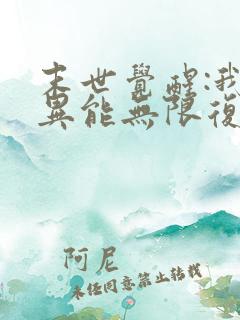 末世覺醒:我
異能無限復
阿尼
未經同意禁止轉載